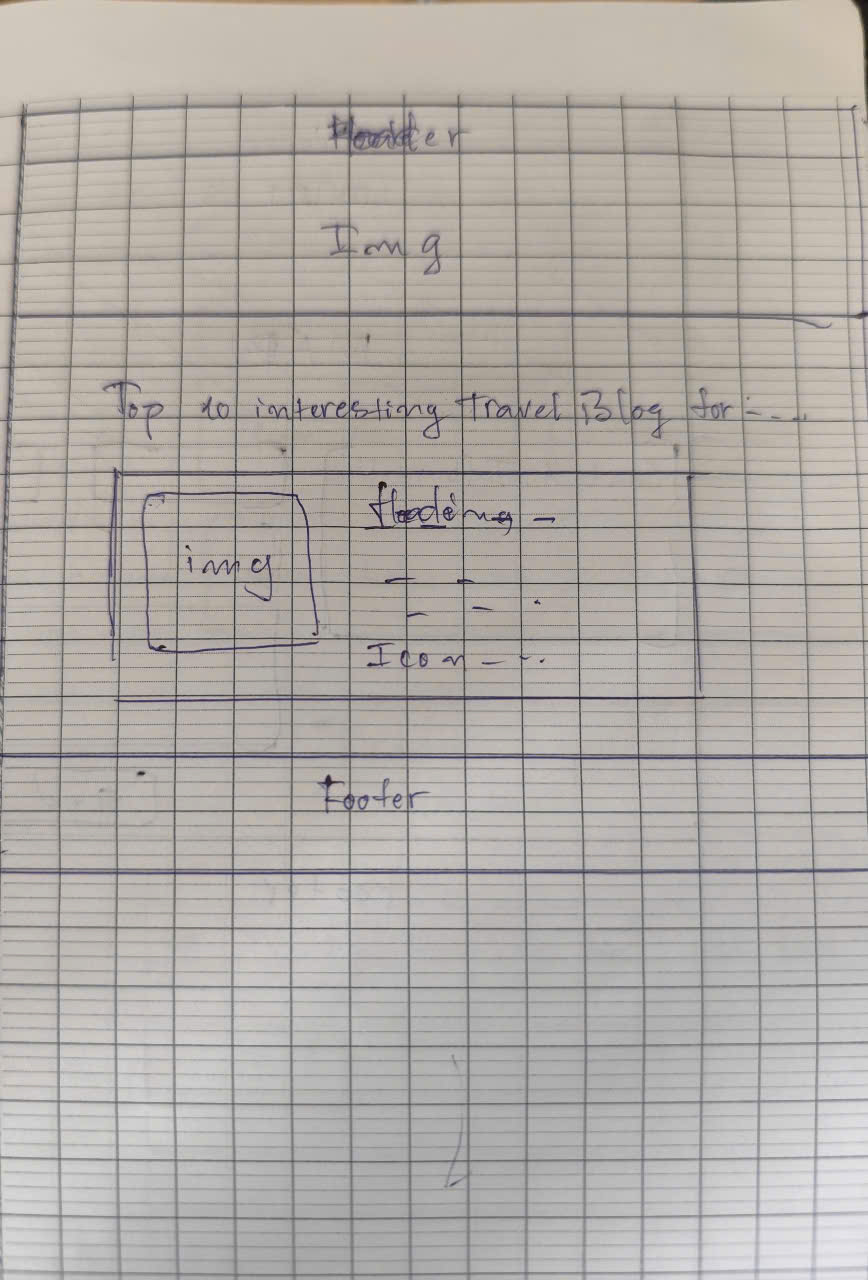 Header
Img
Top 10 interesting travel Blog for - ....
img
Heading -
- -
- - .
Icon - - .
Footer